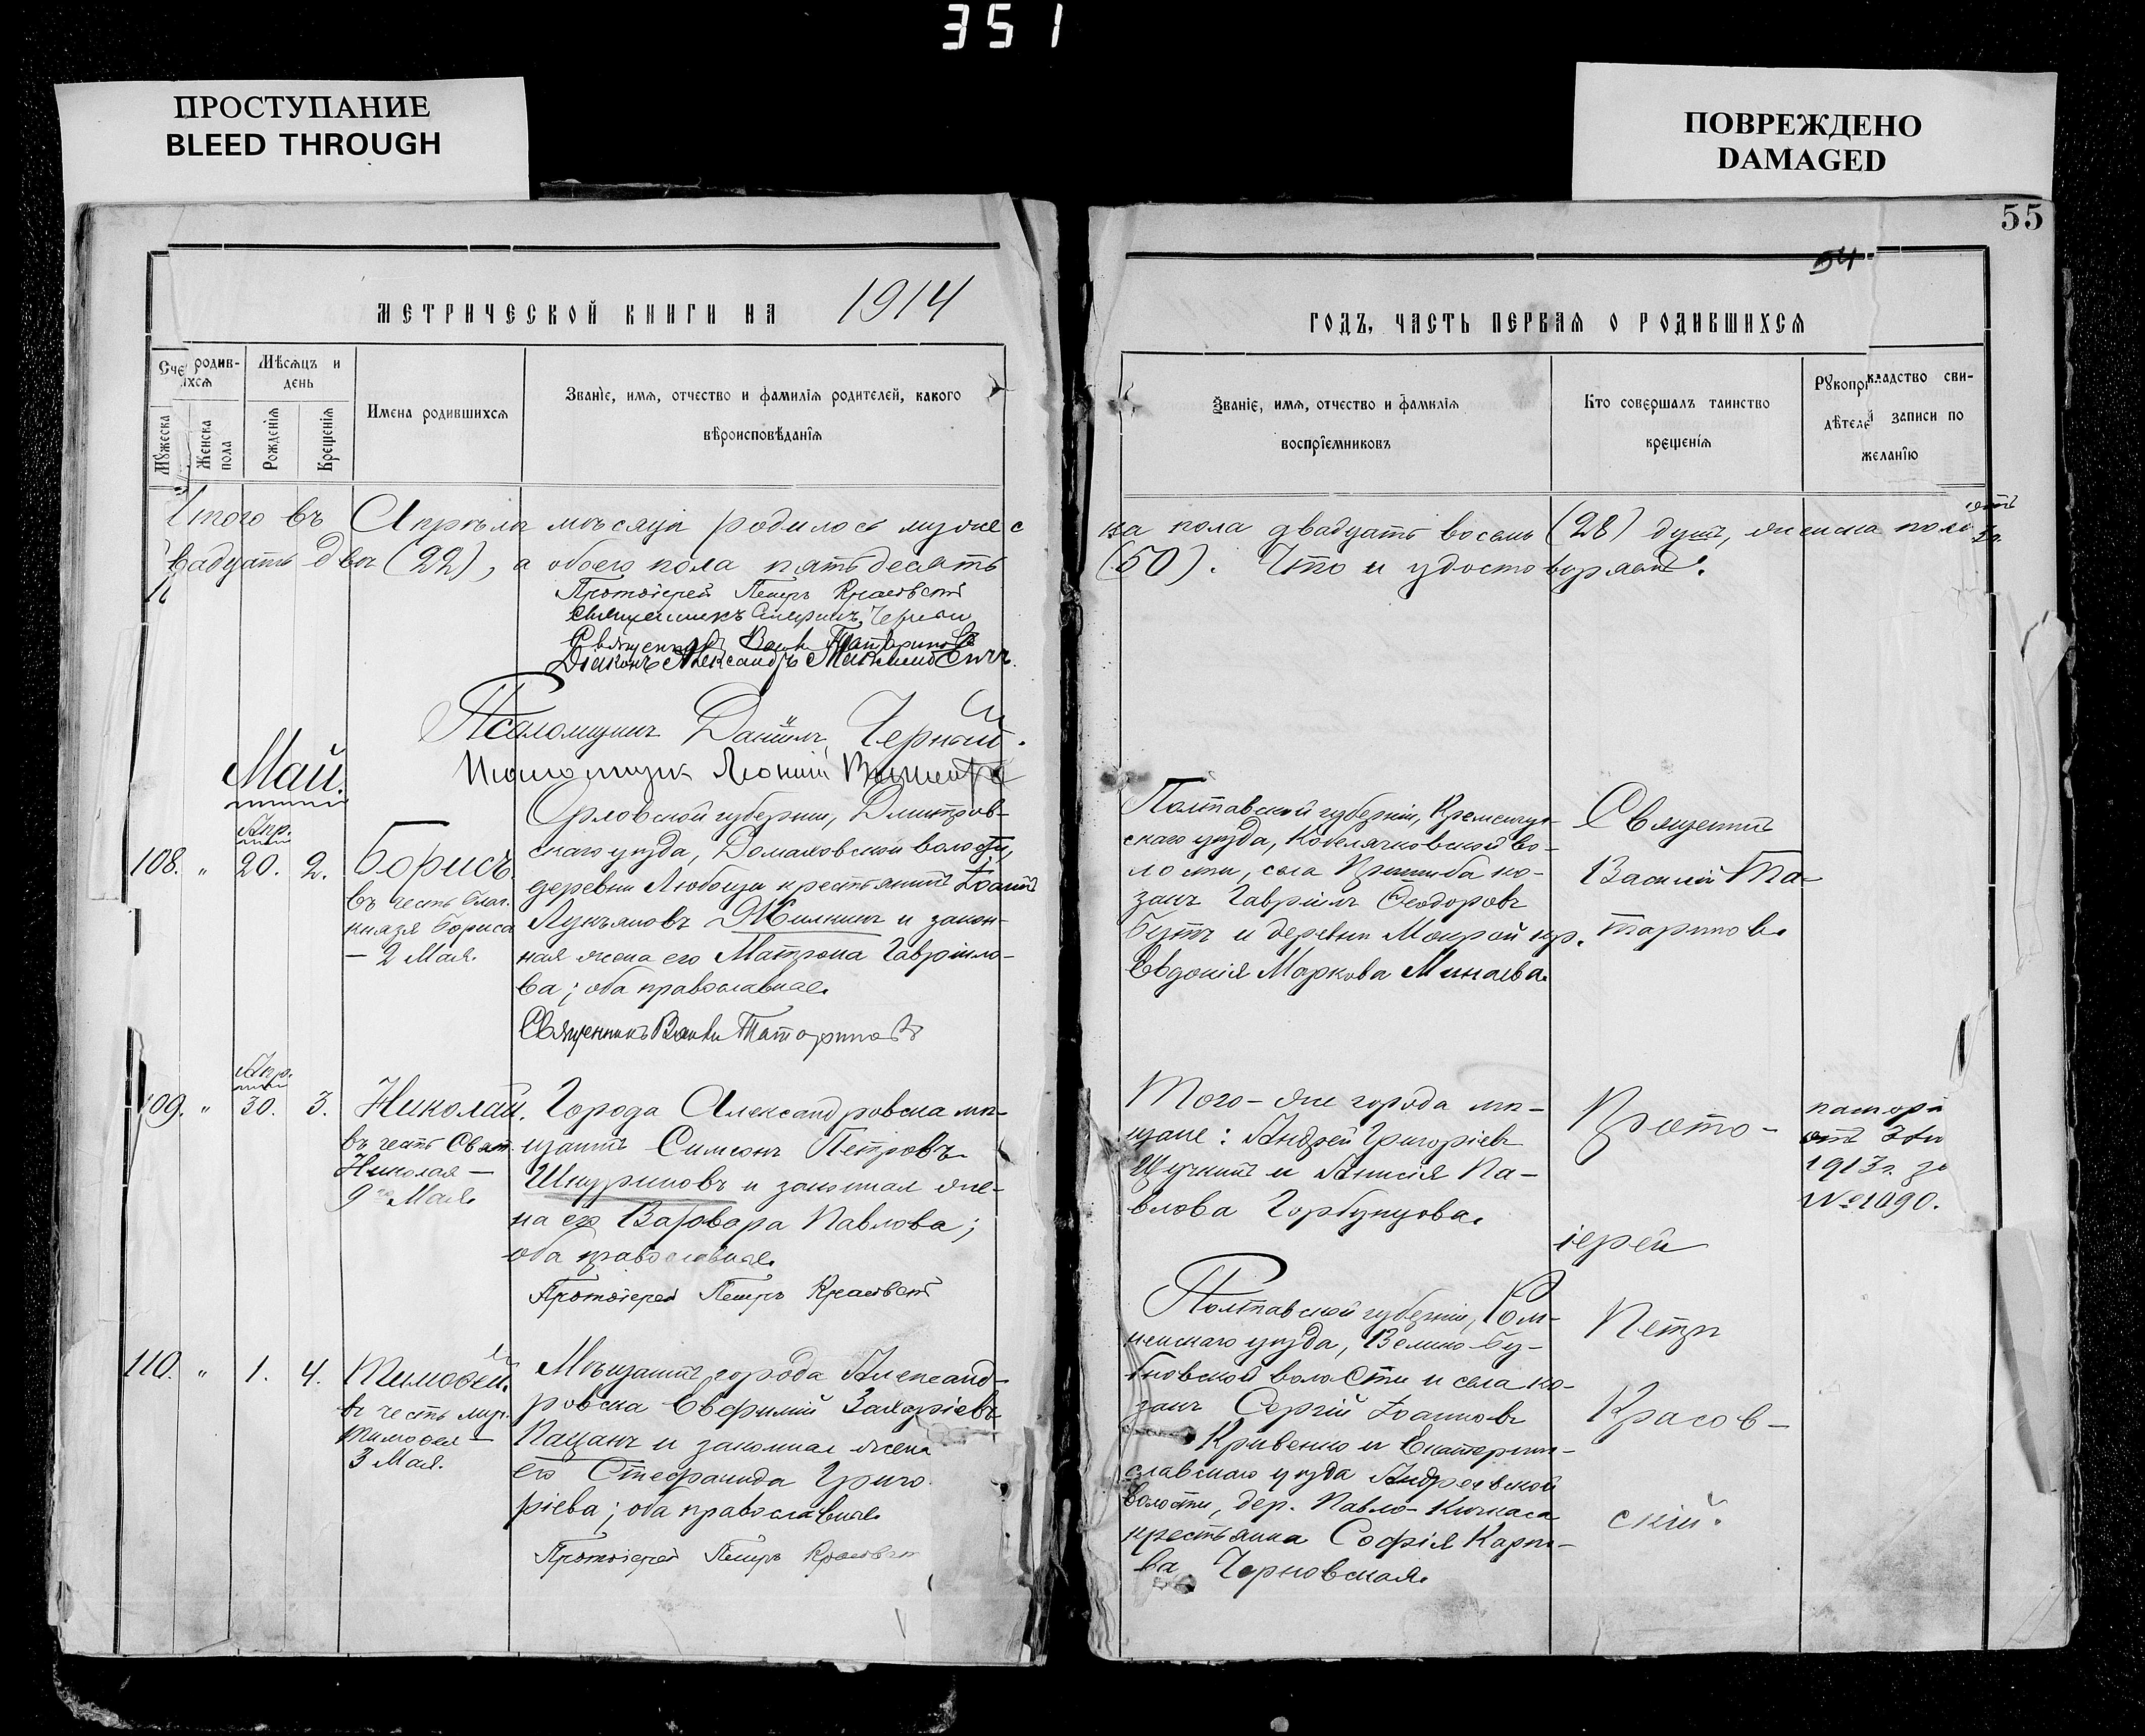 351
ПРОСТУПАНИЕ
BLEED THROUGH
ПОВРЕЖДЕНО
DAMAGED
55
54
МЕТРИЧЕСКОЙ КНИГИ НА 1914
ГОДЪ, ЧАСТЬ ПЕРВАЯ О РОДИВШИХСЯ
Сче родив-
ихся
Мѣсяцъ и
день
Мужеска
Женска
пола
Рожденія
Крещенія
Имена родившихся
Званіе, имя, отчество и фамилія родителей, какого
вѣроисповѣданія
Званіе, имя, отчество и фамилія
воспріемниковъ
Кто совершалъ таинство
крещенія
Рукопри кладство сви-
дѣтеле записи по
желанію
Итого въ Апрѣлѣ мѣсяцѣ родилось мужес
ка пола двадцать восемь (28) душъ, женска пола
вадцать двѣ (22), а обоего пола пятьдесятъ
(50). Что и удостовѣряемъ.
Протоіерей Петръ Красовскій
Священникъ Чернай
Священникъ Васил Татариновъ
Діаконъ Александръ
Псаломщикъ Даніилъ Черный.
Псаломщик
Май.
Апр.
108. " 20. 2.
Борисъ
въ честь благ.
князя Бориса
— 2 Мая.
Орловской губерніи, Дмитров-
скаго уѣзда, Домаховской волости,
деревни Любощи крестьянинъ Іоаннъ
Лукьяновъ Жилкинъ и закон-
ная жена его Матрона Гавріило-
ва; оба православные.
Священникъ Васил Татариновъ
Полтавской губерніи, Кременчуг-
скаго уѣзда, Кобелячковской во-
лости, села ко-
закъ Гавріилъ Ѳеодоровъ
Бутъ и деревни Мокрой кр.
Евдокія Маркова Минаева.
Священникъ
Василій Та-
тариновъ.
Апр.
109. " 30. 3.
Николай.
въ честь Свят.
Николая —
9 го Мая.
Города Александровска мѣ-
щанинъ Симеонъ Петровъ
Шкуриновъ и законная же-
на его Варвара Павлова;
оба православные.
Протоіерей Петръ Красовскій
Того-же города мѣ-
щане: Андрей Григоріевъ
Щучкинъ и Анисія Па-
влова Горбунцова.
Прото-
іерей
Петръ
Красов-
скій.
1913 г. за
№ 1090.
110. " 1. 4.
Тимоѳей.
въ честь муч.
Тимоѳея —
3 Мая.
Мѣщанинъ города Александ-
ровска Евфимій Захаріевъ
Пацанъ и законная жена
его Стефанида Григо-
ріева; оба православные.
Протоіерей Петръ Красовскій
Полтавской губерніи, Ром-
ненскаго уѣзда, Велико-Бу-
бновской волости и села ко-
закъ Сергій Іоанновъ
Кривенко и Екатерин-
славскаго уѣзда Андреевской
волости, дер. Павло-Кичкаса
крестьянка Софія Карпо-
ва Черновская.